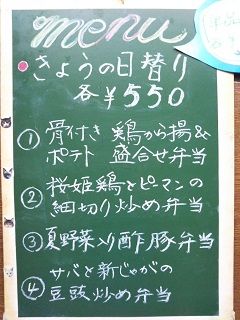 menu
きょうの日替り
各¥550
① 骨付き鶏から揚&
ポテト 盛合せ弁当
② 桜姫鶏とピーマンの
細切り炒め弁当
③ 夏野菜入り酢豚弁当
④ サバと新じゃがの
豆豉炒め弁当